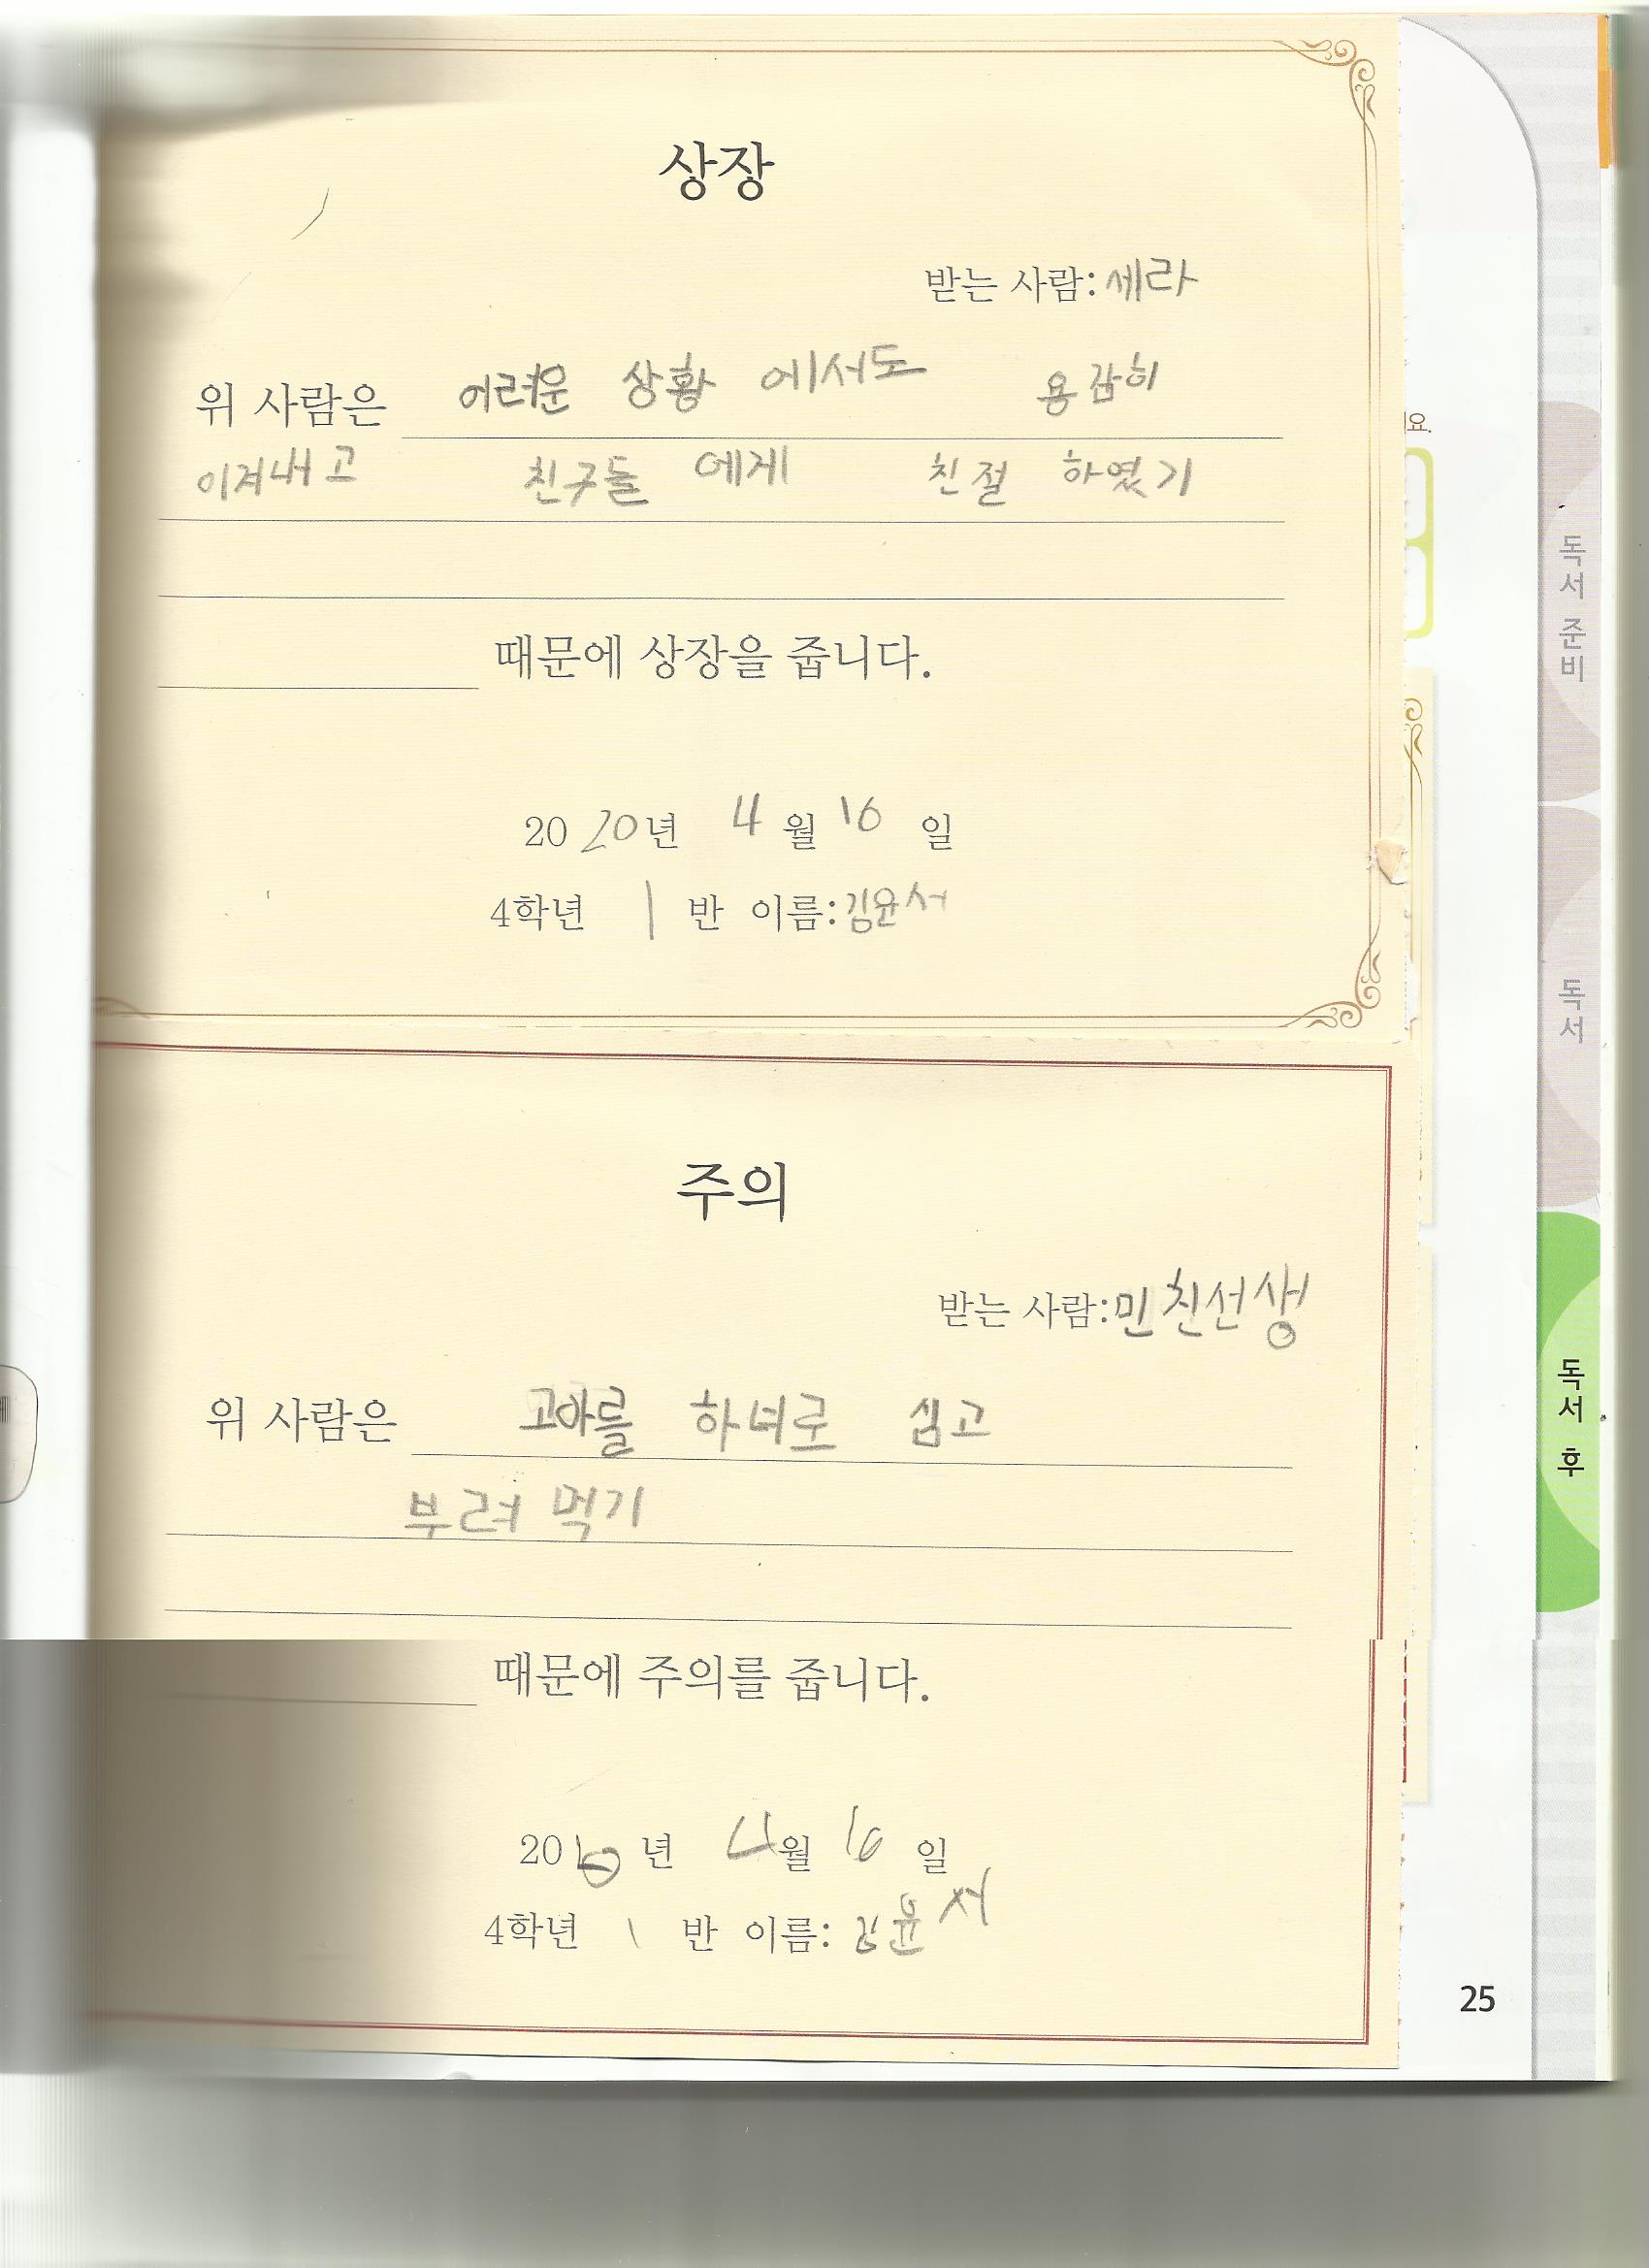 상장
받는 사람: 세라
위 사람은 어려운 상황 에서도 용감히
이겨내고 친구들 에게 친절 하였기
때문에 상장을 줍니다.
2020년 4월 16일
4학년 1반 이름: 김윤서
요.
주의
받는 사람: 민친선생
위 사람은 고아를 하녀로 삼고
부려 먹기
때문에 주의를 줍니다.
20 년 4월 16일
4학년 1반 이름: 김윤서
독서 준비
독서
독서 후
25